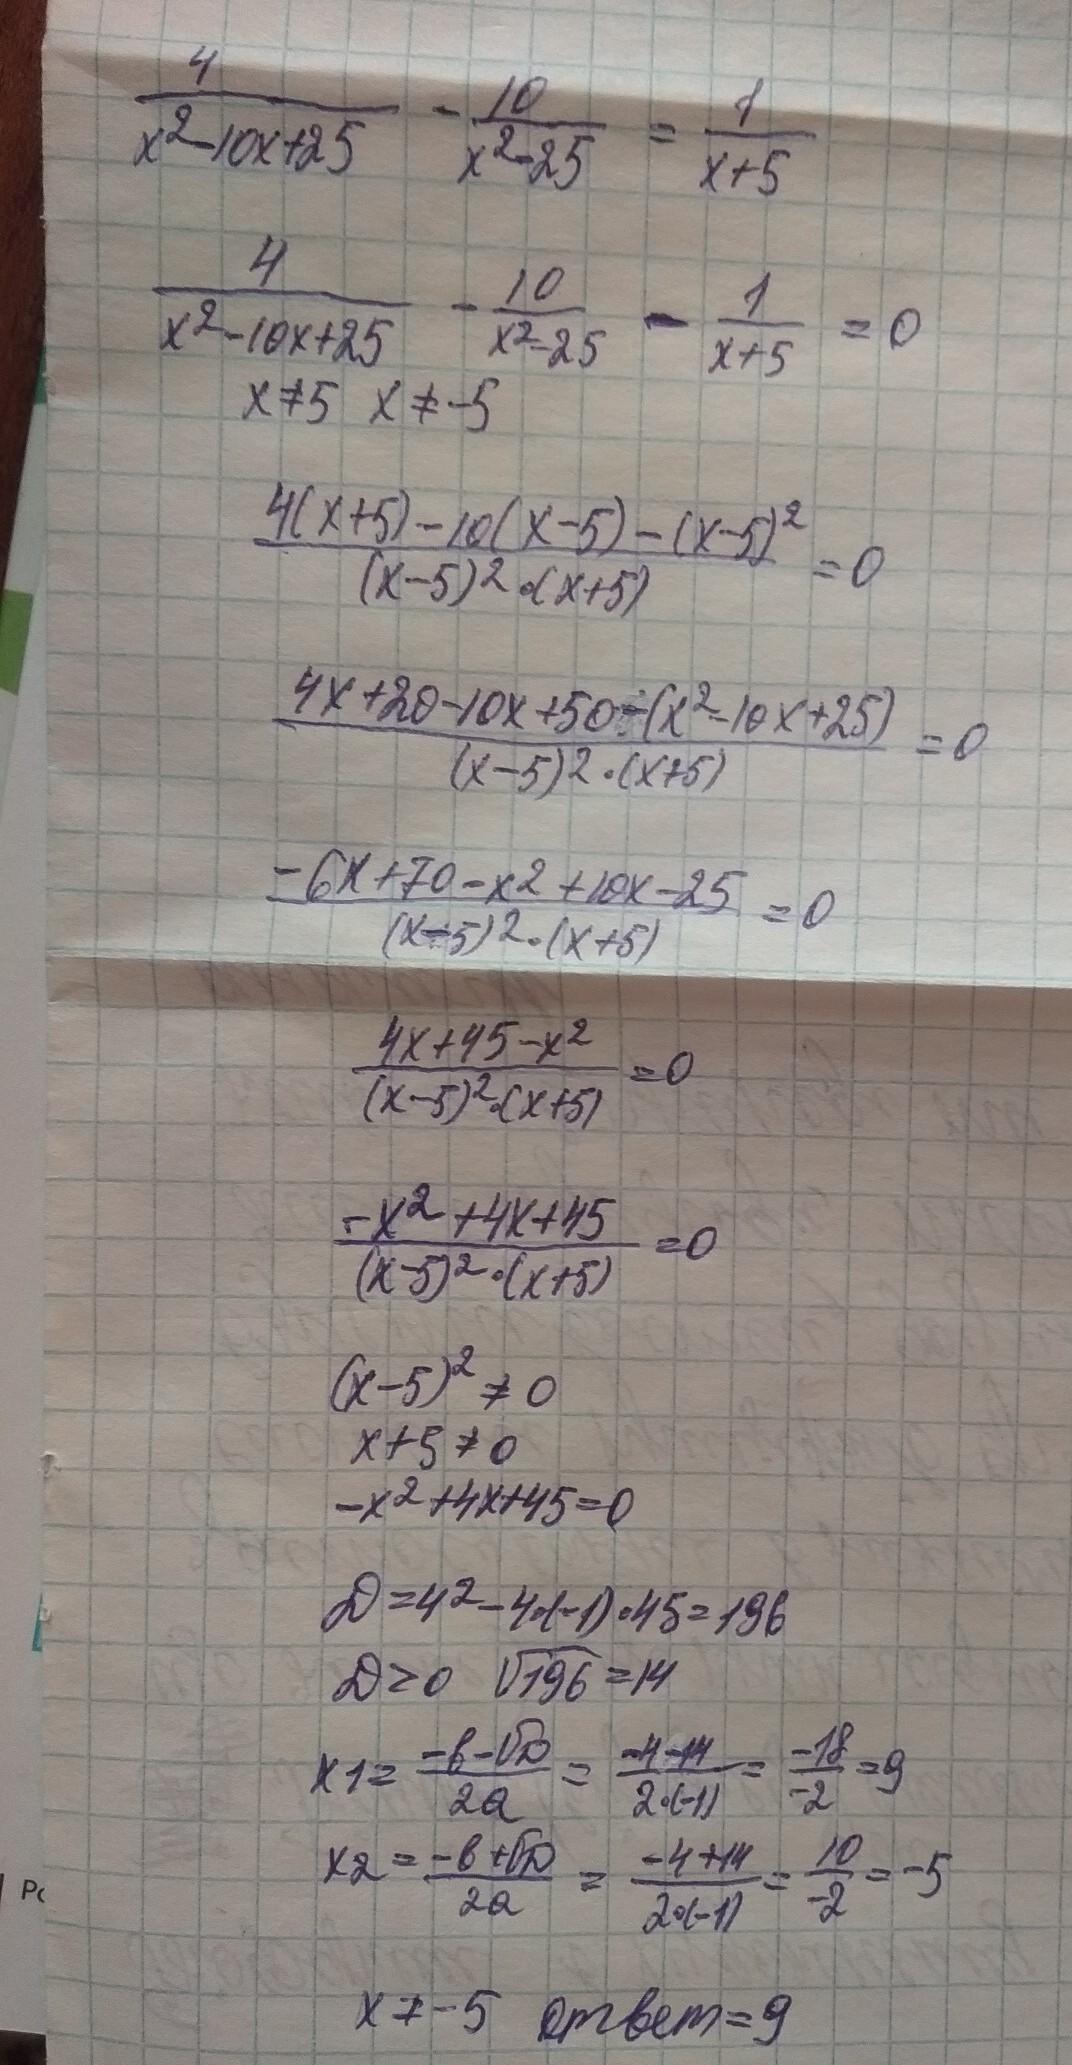 4/(x²-10x+25) - 10/(x²-25) = 1/(x+5)
4/(x²-10x+25) - 10/(x²-25) - 1/(x+5) = 0
x≠5 x≠-5
(4(x+5)-10(x-5)-(x-5)²)/((x-5)²·(x+5)) = 0
(4x+20-10x+50-(x²-10x+25))/((x-5)²·(x+5)) = 0
(-6x+70-x²+10x-25)/((x-5)²·(x+5)) = 0
(4x+45-x²)/((x-5)²·(x+5)) = 0
(-x²+4x+45)/((x-5)²·(x+5)) = 0
(x-5)²≠0
x+5≠0
-x²+4x+45=0
D=4²-4·(-1)·45=196
D>0 √196=14
x1= (-b-√D)/(2a) = (-4-14)/(2·(-1)) = (-18)/(-2) = 9
x2= (-b+√D)/(2a) = (-4+14)/(2·(-1)) = 10/(-2) = -5
x≠-5 ответ=9